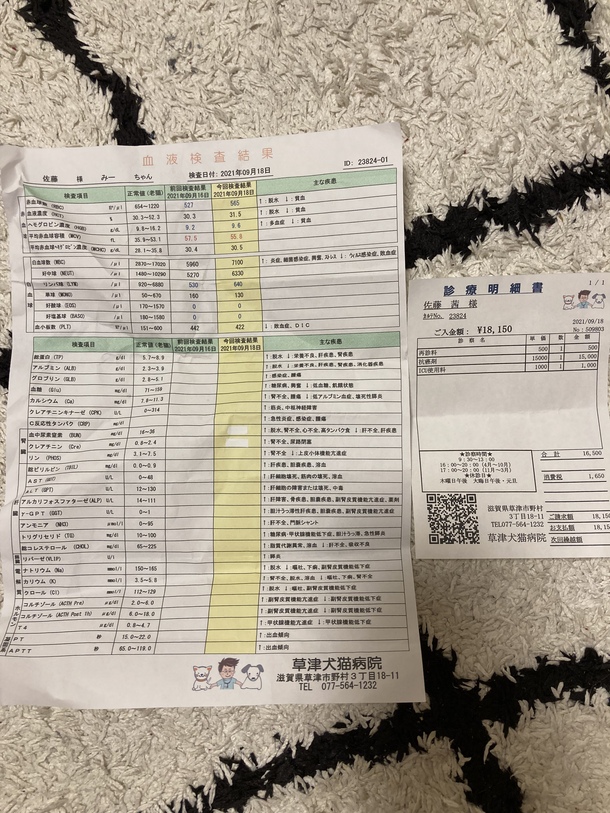 血液検査結果
佐藤 様 みー ちゃん 検査日付: 2021年09月18日 ID: 23824-01
検査項目 正常値(老猫) 前回検査結果 2021年09月16日 今回検査結果 2021年09月18日 主な疾患
赤血球数(RBC) 654~1220 527 565 ↑:脱水 ↓:貧血
血液濃度(HCT) % 30.3~52.3 30.3 31.5 ↑:脱水 ↓:貧血
ヘモグロビン濃度(HGB) g/dL 9.8~16.2 9.2 9.6 ↑:多血症 ↓:貧血
平均赤血球容積(MCV) fL 35.9~53.1 57.5 55.8
平均赤血球ヘモグロビン濃度(MCHC) g/dL 28.1~35.8 30.4 30.5
白血球数(WBC) 2870~17020 5960 7100 ↑:炎症、細菌感染症、興奮、ストレス ↓:ウィルス感染症、敗血症
好中球(NEUT) 1480~10290 5270 6330
リンパ球(LYM) 920~6880 530 640
単球(MONO) 50~670 160 130
好酸球(EOS) 170~1570 0 0
好塩基球(BASO) 0 0
血小板数(PLT) 151~600 442 422 ↓:敗血症、DIC
検査項目 正常値(老猫) 前回検査結果 2021年09月16日 今回検査結果 2021年09月18日 主な疾患
総蛋白(TP) g/dl 5.7~8.9
アルブミン(ALB) g/dl 2.3~3.9
グロブリン(GLB) g/dl 2.8~5.1 ↑:感染症、腫瘍
血糖(Glu) 71~159 ↑:糖尿病、興奮 ↓:低血糖、飢餓状態
カルシウム(Ca) 7.8~11.3 ↑:腎不全、腫瘍 ↓:低アルブミン血症、壊死性膵炎
クレアチンキナーゼ(CPK) U/L 0~314 ↑:筋炎、中枢神経障害
C反応性タンパク(CRP) ↑:急性炎症、感染症、腫瘍
血中尿素窒素(BUN) 16~36 ↑:脱水、腎不全、心不全、高タンパク食 ↓:肝不全、肝疾患
クレアチニン(Cre) 0.8~2.4 ↑:腎不全、尿路閉塞
リン(PHOS) 3.1~7.5 ↑:腎不全 ↓:上皮小体機能亢進
総ビリルビン(TBIL) 0.0~0.9 ↑:肝疾患、胆嚢疾患、溶血
AST(GOT) U/L 0~48 ↑:肝細胞破壊、筋肉の破壊、溶血
ALT(GPT) U/L 12~130 ↑:肝細胞の障害または壊死、中毒
アルカリフォスファターゼ(ALP) U/L 14~111 ↑:肝障害、骨疾患、胆嚢疾患、副腎皮質機能亢進症、薬剤
r-GPT(GGT) U/L 0~1
アンモニア(NH3) 0~95 ↑:肝不全、門脈シャント
トリグリセリド(TG) 10~100
総コレステロール(CHOL) 65~225
リパーゼ(vLIP) U/l ↑:膵炎
ナトリウム(Na) 150~165 ↑:脱水 ↓:嘔吐、下痢、副腎皮質機能低下症
カリウム(K) 3.5~5.8 ↑:腎不全、脱水、溶血 ↓:嘔吐、下痢、腎不全
クロール(Cl) 112~129
コルチゾール(ACTH Pre) 2.0~6.0
コルチゾール(ACTH Post 1h) 6.0~18.0
T4 0.8~4.7 ↑:甲状腺機能亢進症 ↓:甲状腺機能低下症
PT 秒 15.0~22.0 ↑:出血傾向
APTT 秒 65.0~119.0 ↑:出血傾向
草津犬猫病院
滋賀県草津市野村3丁目18-11
TEL 077-564-1232
1/1
診療明細書
佐藤 茜 様
カルテNo. 23824
2021/09/18
No:509803
ご入金額: ¥18,150
診療名 単価 数 金額
再診料 500 1 500
抗癌剤 15000 1 15,000
ICU使用料 1000 1 1,000
★診察時間★
9:30~13:00
16:00~20:00 (4月~10月)
16:00~20:00 (11月~3月)
★休診日★
木曜日午後・火曜日午後・元旦
合計 16,500
消費税 1,650
滋賀県草津市野村
3丁目18-11
TEL077-564-1232
草津犬猫病院
ご請求額 18,15
お支払額 18,15
次回繰越額